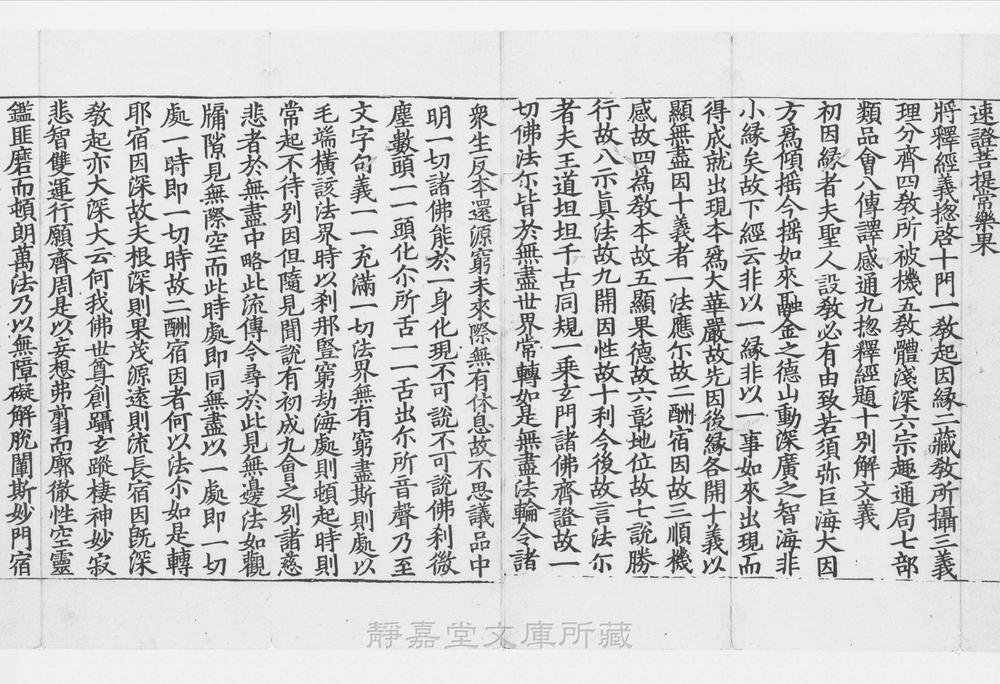 速證菩提常樂果
將釋經義揔啓十門一教起因緣二藏教所攝三義
理分齊四教所被機五教體淺深六宗趣通局七部
類品會八傳譯感通九揔釋經題十別解文義
初因緣者夫聖人設教必有由致若須弥巨海大因
方爲傾揺今揺如來融金之德山動深廣之智海非
小緣矣故下經云非以一緣非以一事如來出現而
得成就出現本爲大華嚴故先因後緣各開十義以
顯無盡因十義者一法應尒故二酬宿因故三順機
感故四爲教本故五顯果德故六彰地位故七説勝
行故八示真法故九開因性故十利今後故言法尒
者夫王道坦坦千古同規一乗玄門諸佛齊證故一
切佛法尒皆於無盡世界常轉如是無盡法輪令諸
衆生反本還源窮未來際無有休息故不思議品中
明一切諸佛能於一身化現不可説不可説佛刹微
塵數頭一一頭化尒所舌一一舌出尒所音聲乃至
文字句義一一充滿一切法界無有窮盡斯則處以
毛端橫該法界時以刹那竪窮劫海處則頓起時則
常起不待别因但隨見聞説有初成九會之别諸慈
悲者於無盡中略此流傳令尋於此見無邊法如觀
牖隙見無際空而此時處即同無盡以一處即一切
處一時即一切時故二酬宿因者何以法尒如是轉
耶宿因深故夫根深則果茂源遠則流長宿因旣深
教起亦大深大云何我佛世尊創躡玄蹤棲神妙寂
悲智雙運行願齊周是以妄想弗翦而廓徹性空靈
鑑匪磨而頓朗萬法乃以無障礙解脫闡斯妙門宿
靜嘉堂文庫所藏